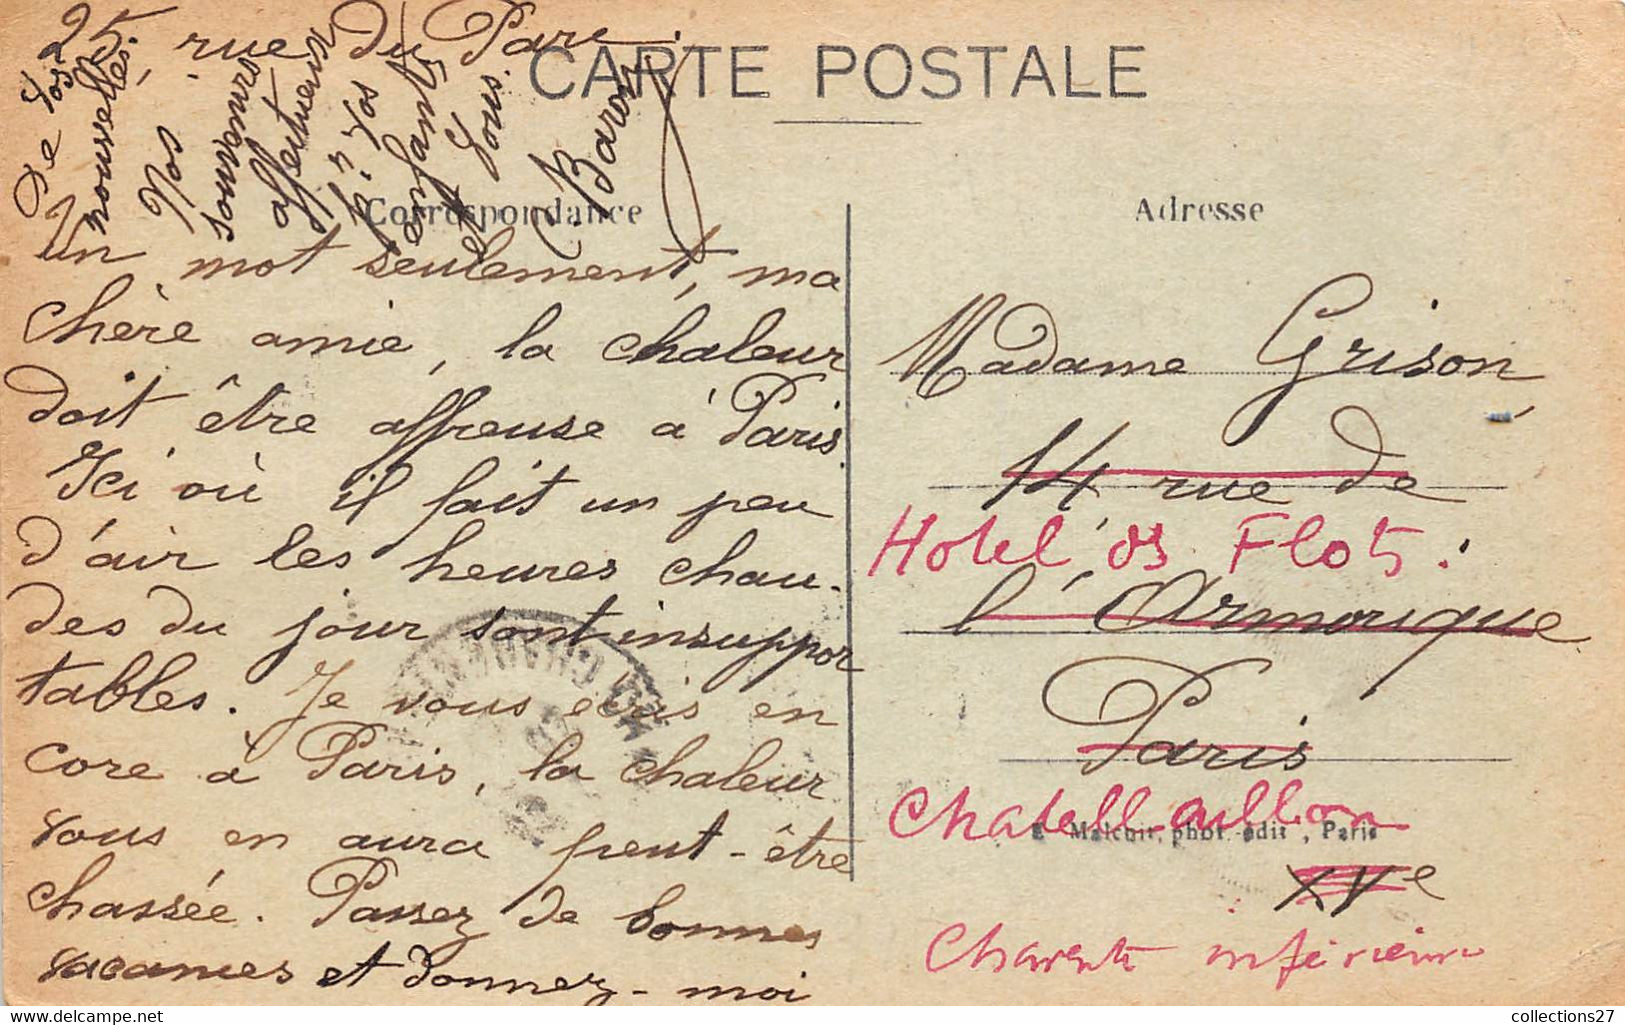 25, rue du Parc.
CARTE POSTALE
Correspondance
Un mot seulement, ma
chère amie, la chaleur
doit être affreuse à Paris.
Ici où il fait un peu
d'air les heures chau-
des du jour sont insuppor
tables. Je vous écris en
core à Paris, la chaleur
vous en aura peut-être
chassée. Passez de bonnes
vacances et donnez-moi
de vos
nouvelles.
Nos
souvenirs
affectueux
à vos
enfants
et vous.
Baron
Adresse
Madame Grison
14 rue de
Hotel des Flots.
l'Armorique
Paris
Chatell-aillon
Malcuit, phot.-édit., Paris
XVe
Charente inférieure
collections27